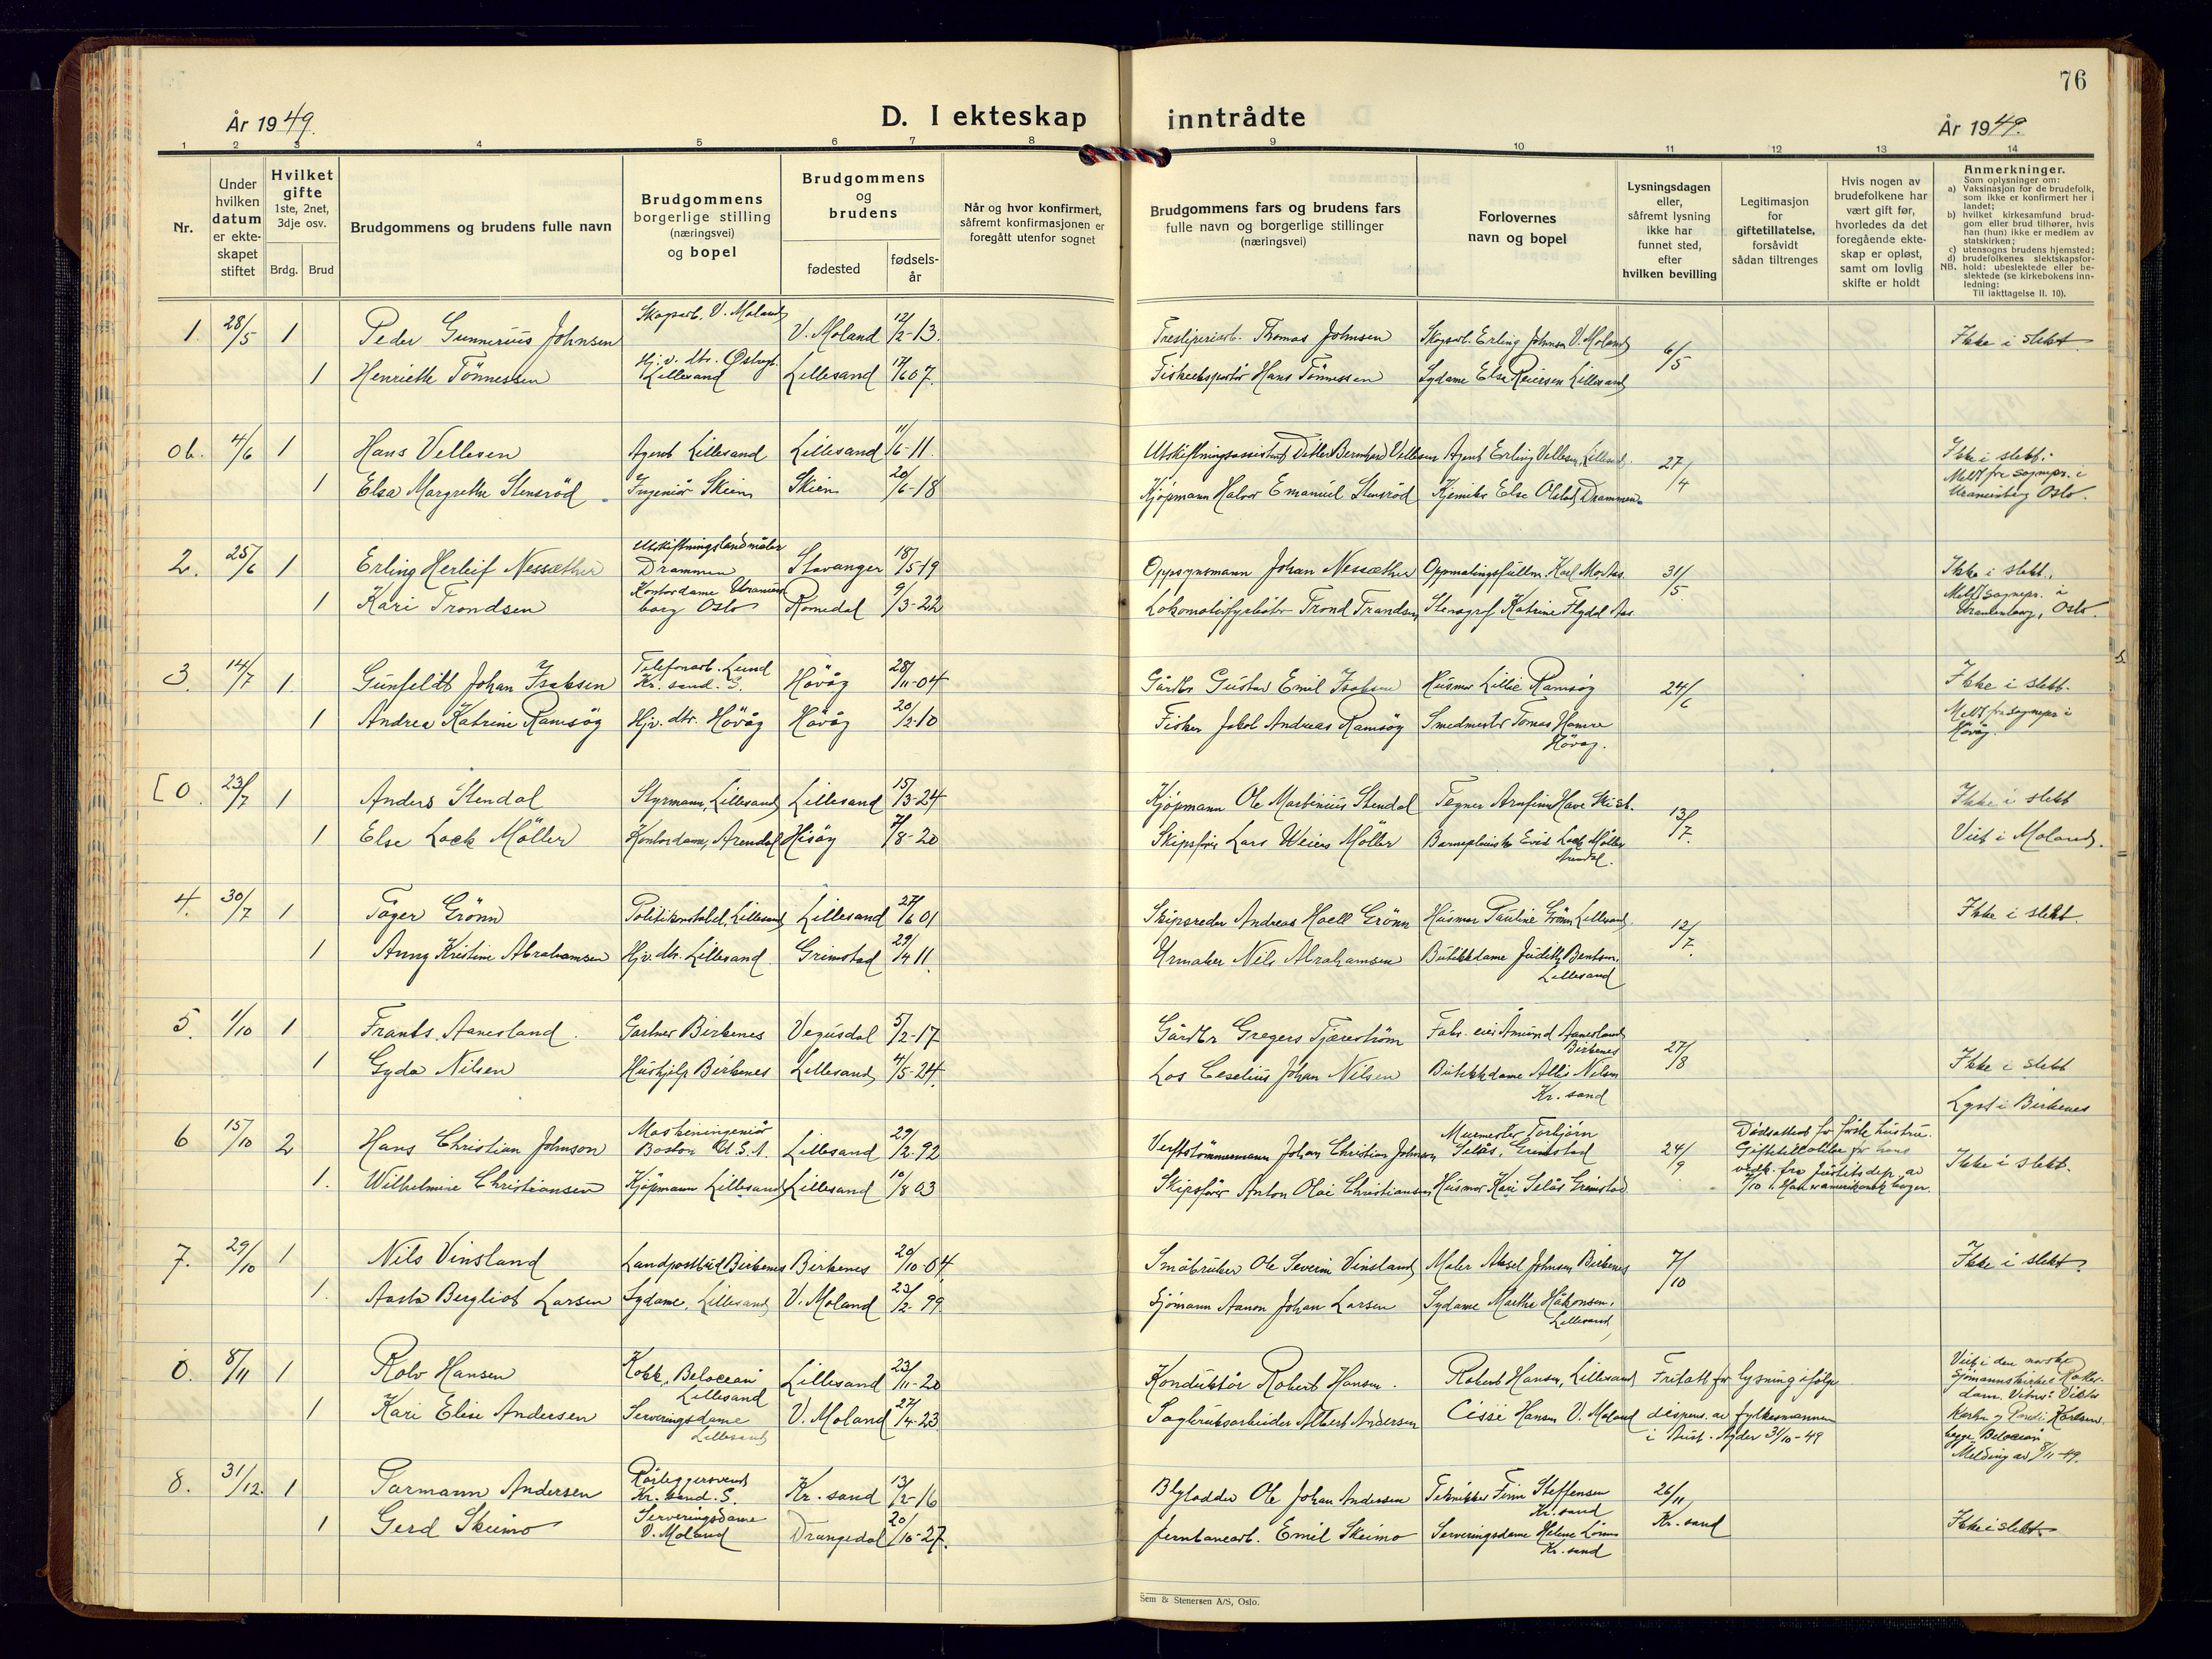 76
År 1949.
D. I ekteskap inntrådte
År 1949.
1 2 3 4 5 6 7 8 9 10 11 12 13 14
Nr.
Under hvilken datum er ekteskapet stiftet
Hvilket gifte 1ste, 2net, 3dje osv.
Brdg. Brud
Brudgommens og brudens fulle navn
Brudgommens borgerlige stilling (næringsvei) og bopel
Brudgommens og brudens
fødested
fødsels-år
Når og hvor konfirmert, såfremt konfirmasjonen er foregått utenfor sognet
Brudgommens fars og brudens fars fulle navn og borgerlige stillinger (næringsvei)
Forlovernes navn og bopel
Lysningsdagen eller, såfremt lysning ikke har funnet sted, efter hvilken bevilling
Legitimasjon for giftetillatelse, forsåvidt sådan tiltrenges
Hvis nogen av brudefolkene har vært gift før, hvorledes da det foregående ekteskap er opløst, samt om lovlig skifte er holdt
Anmerkninger.
Som oplysninger om:
a) Vaksinasjon for de brudefolk, som ikke er konfirmert her i landet;
b) hvilket kirkesamfund brudgom eller brud tilhører, hvis han (hun) ikke er medlem av statskirken;
c) utensogns brudens hjemsted;
d) brudefolkenes slektskapsforhold: ubeslektede eller beslektede (se kirkebokens innledning:
NB.
Til iakttagelse II. 10).
1. 28/5 1 Peder Gunnerius Johnsen Skogsarb. V. Moland V. Moland 12/2-13. Tresliperiarb. Thomas Johnsen Skogsarb. Erling Johnsen V. Moland 6/5 Ikke i slekt
1 Henriette Tönnessen Hj.v. dtr. Østregt. Lillesand Lillesand 17/6 07. Fiskeeksportör Hans Tönnessen Sydame Else Reiersen Lillesand
0b. 4/6 1 Hans Vellesen Agent Lillesand Lillesand 11/6-11. Utskiftningsassistent Ditlev Bernhard Vellesen Agent Erling Vellesen, Lillesand. 27/4 Ikke i slekt.
1 Elsa Margrethe Stensröd Ingeniör Skien Skien 20/6-18 Kjöpmann Halvor Emanuel Stensröd Kjemiker Else Olstad, Drammen. Meldt fra sognepr. i Uranienborg Oslo.
2. 25/6 1 Erling Herleif Nessæther Utskiftningslandmåler Drammen Stavanger 18/5-19 Oppsynsmann Johan Nessæther Oppmålingsfullm. Karl 31/5 Ikke i slekt.
1 Kari Trondsen Kontordame Uranienborg Oslo Romedal 9/3-22 Lokomotivfyrböter Trond Trondsen Stenograf Katrine Flydal Aas Meldt sognepr. i Uranienborg, Oslo.
3. 14/7 1. Gunfeldt Johan Isaksen Telefonarb. Lund Kr. sand. S. Hövåg 28/11-04 Gårdbr Gustav Emil Isaksen Husmor Lillie Ramsög 24/6 Ikke i slekt.
1 Andrea Katrine Ramsög Hjv. dtr. Hövåg Hövåg 20/2-10 Fisker Jakob Andreas Ramsög Smedmester Tomas Hamre Hövåg. Meldt fra sognepr i Hövåg.
[0. 23/7 1 Anders Stendal Styrmann, Lillesand Lillesand 15/3-24 Kjöpmann Ole Martinius Stendal Tegner Arnfinn Have Ski st. 13/7. Ikke i slekt
1 Else Lock Möller Kontordame, Arendal Hisöy 7/8-20 Skipsförer Lars Weiers Möller Barnepleierske Evid Lock Möller Arendal. Viet i Moland.
4. 30/7 1 Tøger Grönn Politikonstabel, Lillesand Lillesand 27/6 01 Skipsreder Andreas Hoell Grönn Husmor Pauline Grönn Lillesand 12/7. Ikke i slekt.
1 Anny Kristine Abrahamsen Hjv. dtr. Lillesand Grimstad 29/4 11. Urmaker Nils Abrahamsen Butikkdame Judith Bentsen Lillesand
5. 1/10 1 Frants Aanesland. Gartner Birkenes Vegusdal 5/2-17 Gårdbr Gregers Tjærestrøm Fabr. eier Åmund Aanesland Birkenes 27/8 Ikke i slekt
1 Gyda Nilsen Hushjelp Birkenes Lillesand 4/5-24. Los Ceselius Johan Nilsen Butikkdame Allis Nilsen Kr. sand Lyst i Birkenes
6 15/10 2 Hans Christian Johnson Maskiningeniör Boston U.S.A. Lillesand 29/2-92 Verftstömmermann Johan Christian Johnsen Murmester Torbjörn Selås, Grimstad 24/9 Dödsattest for förste hustru. Giftetillatelse for hans vedk. fra Justitsdep. av 7/10 Ikke i slekt.
1. Wilhelmine Christiansen Kjöpmann Lillesand Lillesand 10/8 03 Skipsförer Anton Olai Christiansen Husmor Kari Selås Grimstad
7. 29/10 1 Nils Vinsland Landpostbud Birkenes Birkenes 20/10-04. Småbruker Ole Severin Vinsland Maler Aksel Johnsen Birkenes 7/10 Ikke i slekt.
1. Aasta Bergliot Larsen Sydame, Lillesand V. Moland 23/2-99 Sjömann Aanon Johan Larsen Sydame Marthe Håkonsen, Lillesand
0. 8/11 1 Rolv Hansen Kokk, Belocean Lillesand Lillesand 23/11-20 Konduktör Robert Hansen. Robert Hansen, Lillesand Fritatt for lysning ifölge dispens. av fylkesmannen i Aust-Agder 31/10-49 Viet i den norske Sjömannskirke i Rotterdam. Vitner: Karlsen, begge Belocean. Melding av 8/11-49.
1 Kari Elise Andersen Serveringsdame Lillesand V. Moland 27/4-23. Sagbruksarbeider Albert Andersen Cissi Hansen V. Moland
8. 31/12. 1 Tarmann Andersen Rörleggersvend Kr. sand. S. Kr. sand 13/2-16 Blylodder Ole Johan Andersen Tekniker Finn Steffensen Kr. sand 26/11 Kr. sand
1 Gerd Skeimo Serveringsdame V. Moland Drangedal 20/10-27. Jernbanearb. Emil Skeimo Serveringsdame Helene Kr. sand Ikke i slekt
Sem & Stenersen A/S, Oslo.